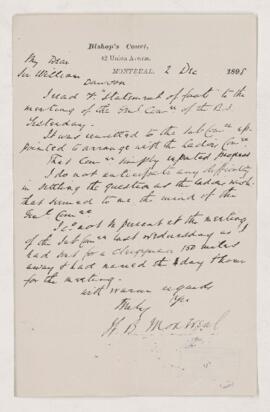 Bishop's Court,
42 Union Avenue,
MONTREAL, 2 Dec 1895
My Dear
Sir William Dawson
I read yr "Statement of facts" to the
meeting of the Genl Comee of the B.S.
Yesterday.
It was remitted to the Sub Comee ap-
pointed to arrange with the Ladies Comee
That Comee simply reported progress
I do not anticipate any difficulty
in settling the question as the Ladies wish.
that seemed to me the mind of the
Genl Comee
I could not be present at the meeting
of the Sub Comee last Wednesday as I
had sent for a clergyman 150 miles
away & had named the day & hour
for the meeting.
with warm regards
Truly Yrs
W. B. Montreal